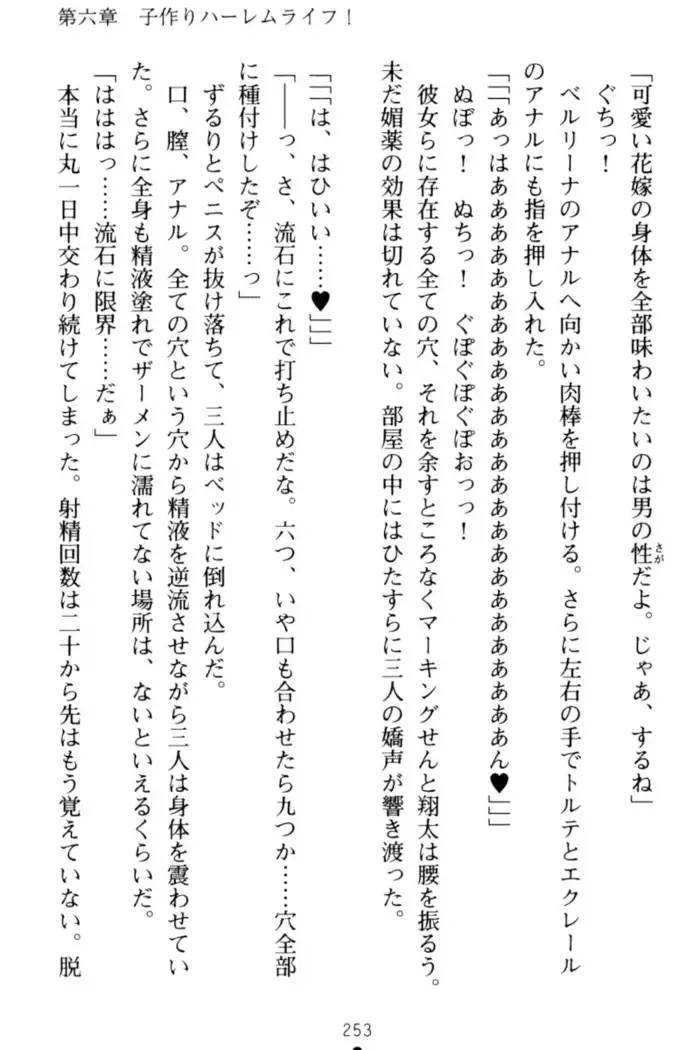 第六章　子作りハーレムライフ！
「可愛い花嫁の身体を全部味わいたいのは男の性だよ。じゃあ、するね」
さが
ぐちっ！
ベルリーナのアナルへ向かい肉棒を押し付ける。さらに左右の手でトルテとエクレール
のアナルにも指を押し入れた。
「「「あっはああああああああああああああああああああああああん♥」」」
ぬぽっ！　ぬちっ！　ぐぽぐぽぐぽおっっ！
彼女らに存在する全ての穴、それを余すところなくマーキングせんと翔太は腰を振るう。
未だ媚薬の効果は切れていない。部屋の中にはひたすらに三人の嬌声が響き渡った。
「「「は、はひいい……♥」」」
「――っ、さ、流石にこれで打ち止めだな。六つ、いや口も合わせたら九つか……穴全部
に種付けしたぞ……っ」
ずるりとペニスが抜け落ちて、三人はベッドに倒れ込んだ。
口、膣、アナル。全ての穴という穴から精液を逆流させながら三人は身体を震わせてい
た。さらに全身も精液塗れでザーメンに濡れてない場所は、ないといえるくらいだ。
「はははっ……流石に限界……だぁ」
本当に丸一日中交わり続けてしまった。射精回数は二十から先はもう覚えていない。脱
253